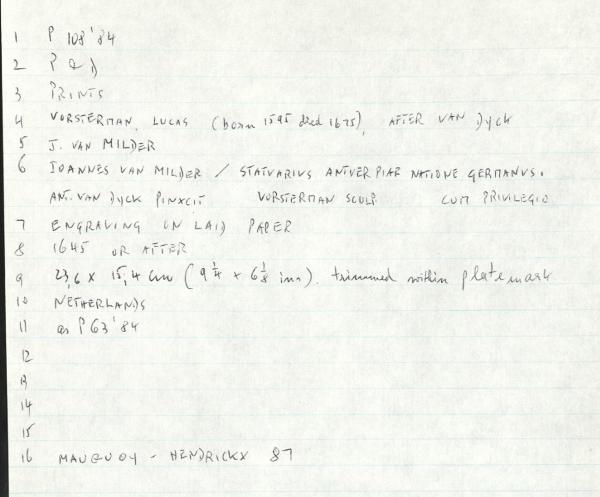 1 P 108'84
2 P & D
3 PRINTS
4 VORSTERMAN, LUCAS (born 1595 died 1675), AFTER VAN DYCK
5 J. VAN MILDER
6 IOANNES VAN MILDER / STATVARIVS ANTVERPIAE NATIONE GERMANVS.
ANT. VAN DYCK PINXCIT VORSTERMAN SCULP. CUM PRIVILEGIO
7 ENGRAVING ON LAID PAPER
8 1645 OR AFTER
9 23,6 x 15,4 cm (9 1/4 x 6 1/8 ins). trimmed within platemark
10 NETHERLANDS
11 as P 63'84
12
13
14
15
16 MAUQUOY - HENDRICKX 87